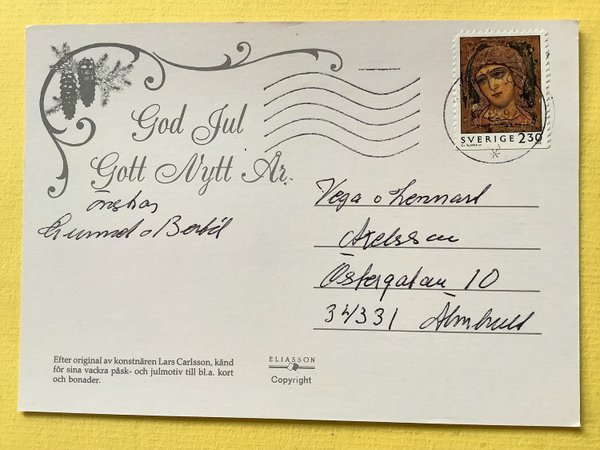 God Jul
Gott Nytt År.
önskar
Gunnel o Bertil
SVERIGE 2.30
Vega o Lennart
Axelsson
Östergatan 10
34331 Älmhult
Efter original av konstnären Lars Carlsson, känd
för sina vackra påsk- och julmotiv till bl.a. kort
och bonader.
ELIASSON
Copyright